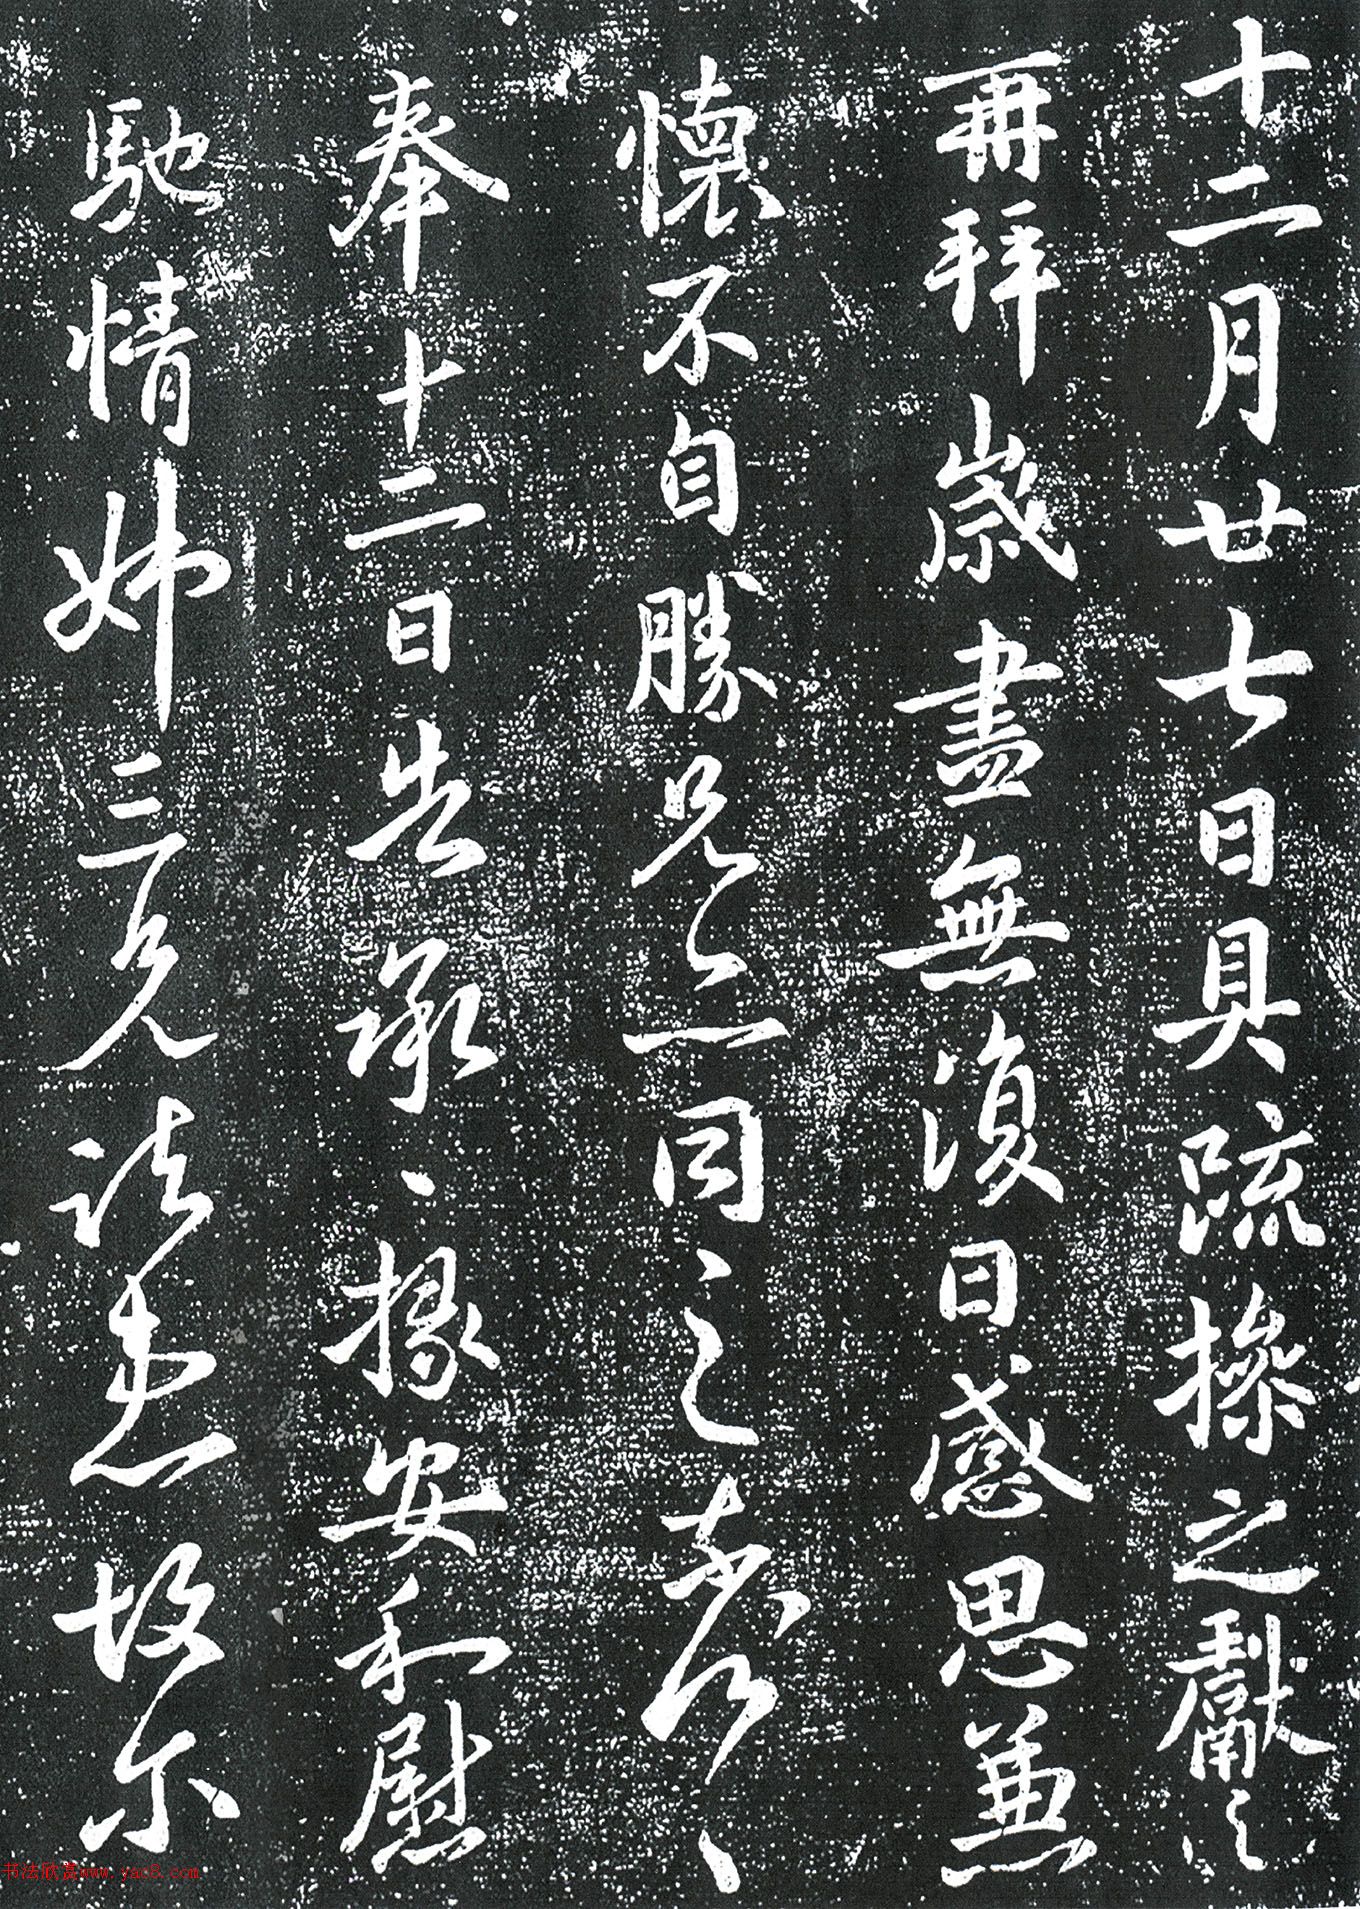 十二月廿七日具疏操之獻之
再拜歲盡無復日感思兼
懷不自勝兄一同〻之奈何〻〻
奉十二日告承〻掾安和慰
馳情姊三兄諸患故尔
书法欣赏www.yac8.com